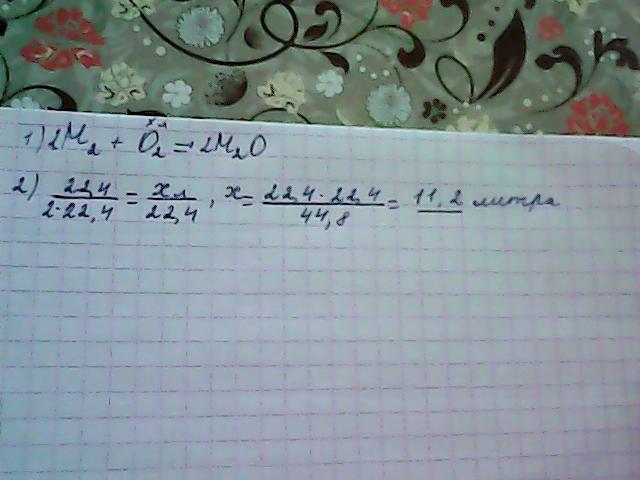 1) 2H2 + O2 = 2H2O
x л
2) 22,4/2·22,4 = x л/22,4, x = 22,4·22,4/44,8 = 11,2 литра